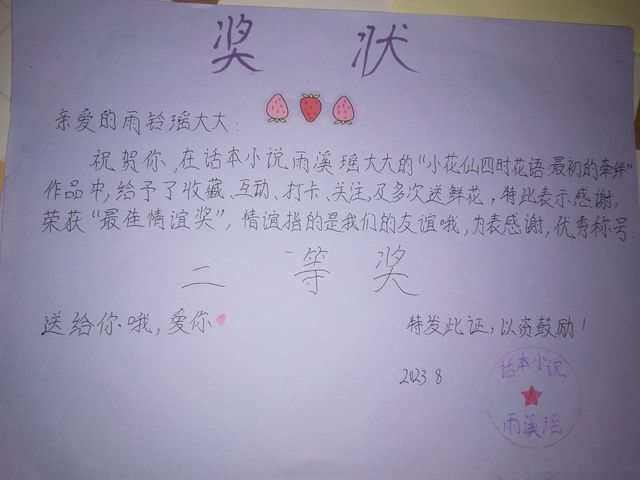 奖 状
亲爱的雨铃瑶大大:
祝贺你,在话本小说雨溪瑶大大的“小花仙四时花语:最初的牵绊”
作品中,给予了收藏、互动、打卡、关注,及多次送鲜花,特此表示感谢,
荣获“最佳情谊奖”,情谊指的是我们的友谊哦,为表感谢,优秀称号.
二 等 奖
送给你哦,爱你
特发此证,以资鼓励!
2023.8
话本小说
雨溪瑶